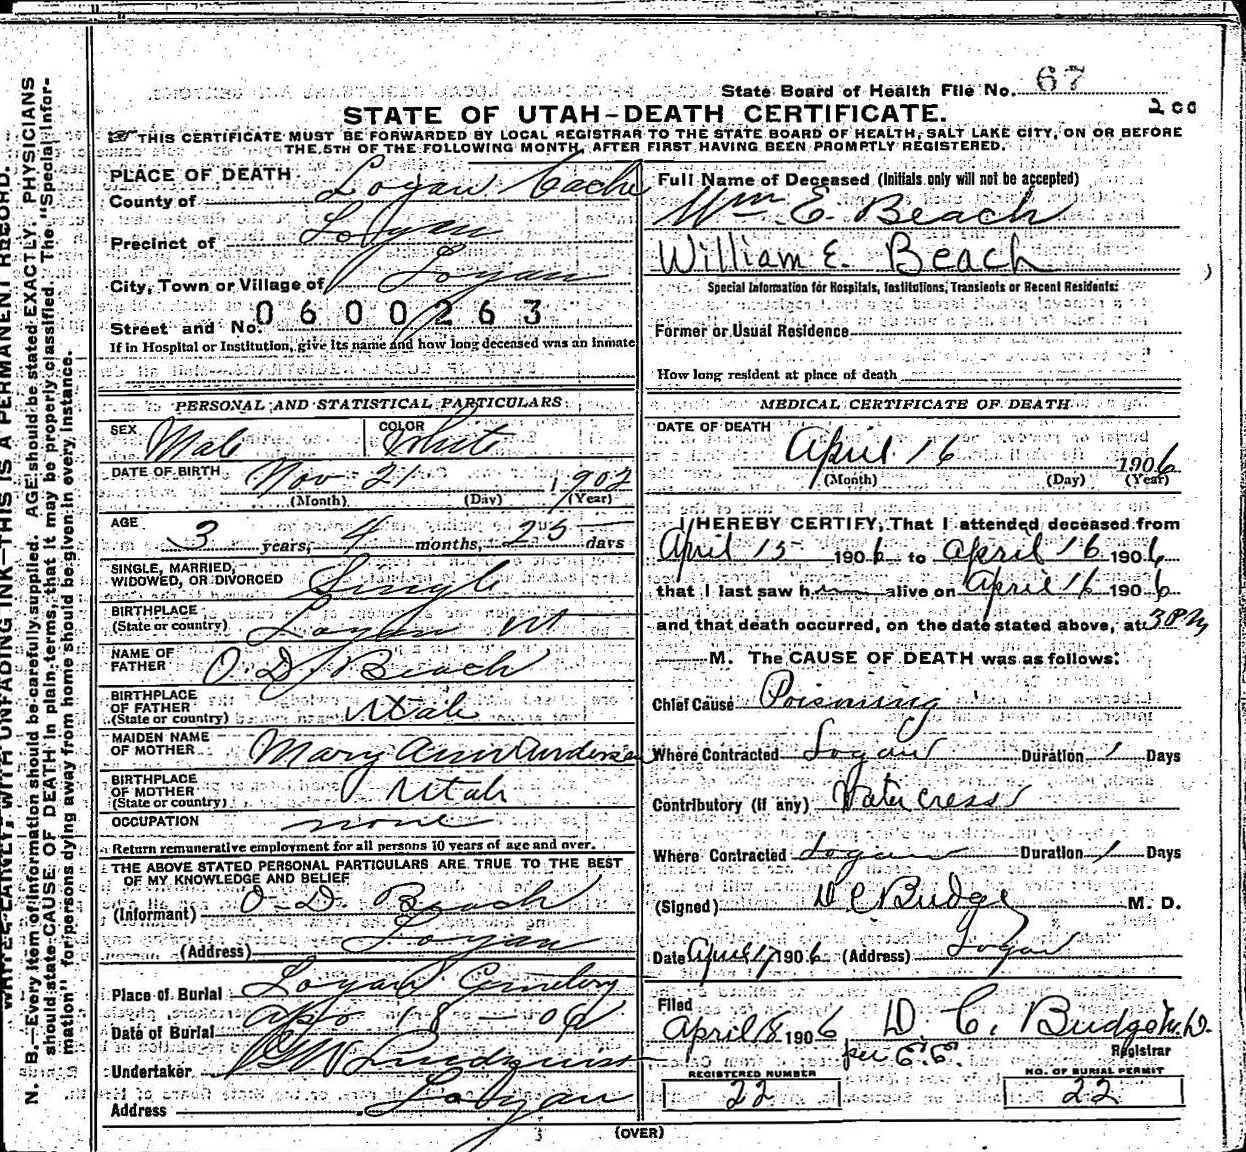 State Board of Health File No. 67
200
STATE OF UTAH-DEATH CERTIFICATE.
THIS CERTIFICATE MUST BE FORWARDED BY LOCAL REGISTRAR TO THE STATE BOARD OF HEALTH, SALT LAKE CITY, ON OR BEFORE
THE 5TH OF THE FOLLOWING MONTH, AFTER FIRST HAVING BEEN PROMPTLY REGISTERED.
PLACE OF DEATH
County of Logan Cache
Precinct of Logan
City, Town or Village of Logan
Street and No. 0600263
If in Hospital or Institution, give its name and how long deceased was an inmate
PERSONAL AND STATISTICAL PARTICULARS
SEX Male COLOR White
DATE OF BIRTH Nov 21 1902
(Month) (Day) (Year)
AGE 3 years, 4 months, 25 days
SINGLE, MARRIED,
WIDOWED, OR DIVORCED Single
BIRTHPLACE
(State or country) Logan Ut
NAME OF
FATHER O. D. Beach
BIRTHPLACE
OF FATHER
(State or country) Utah
MAIDEN NAME
OF MOTHER Mary Ann Anderson
BIRTHPLACE
OF MOTHER
(State or country) Utah
OCCUPATION none
Return remunerative employment for all persons 10 years of age and over.
THE ABOVE STATED PERSONAL PARTICULARS ARE TRUE TO THE BEST
OF MY KNOWLEDGE AND BELIEF
(Informant) O. D. Beach
(Address) Logan
Place of Burial Logan Cemetery
Date of Burial Apr 18-06
Undertaker Lundquist
Address Logan
Full Name of Deceased (Initials only will not be accepted)
Wm E. Beach
William E. Beach
Special Information for Hospitals, Institutions, Transients or Recent Residents:
Former or Usual Residence
How long resident at place of death
MEDICAL CERTIFICATE OF DEATH
DATE OF DEATH
April 16 1906
(Month) (Day) (Year)
I HEREBY CERTIFY, That I attended deceased from
April 15 1906 to April 16 1906
that I last saw him alive on April 16 1906
and that death occurred, on the date stated above, at 3 PM
M. The CAUSE OF DEATH was as follows:
Chief Cause Poisoning
Where Contracted Logan Duration 1 Days
Contributory (if any) Water cress
Where Contracted Logan Duration 1 Days
(Signed) D C Budge M. D.
Date April 17 1906 (Address) Logan
Filed
April 18 1906 D. C. Budge M.D.
per
Registrar
REGISTERED NUMBER
22
NO. OF BURIAL PERMIT
22
(OVER)
3
N. B.—Every item of information should be carefully supplied. AGE should be stated EXACTLY. PHYSICIANS
should state CAUSE OF DEATH in plain terms, that it may be properly classified. The "Special Infor-
mation" for persons dying away from home should be given in every instance.